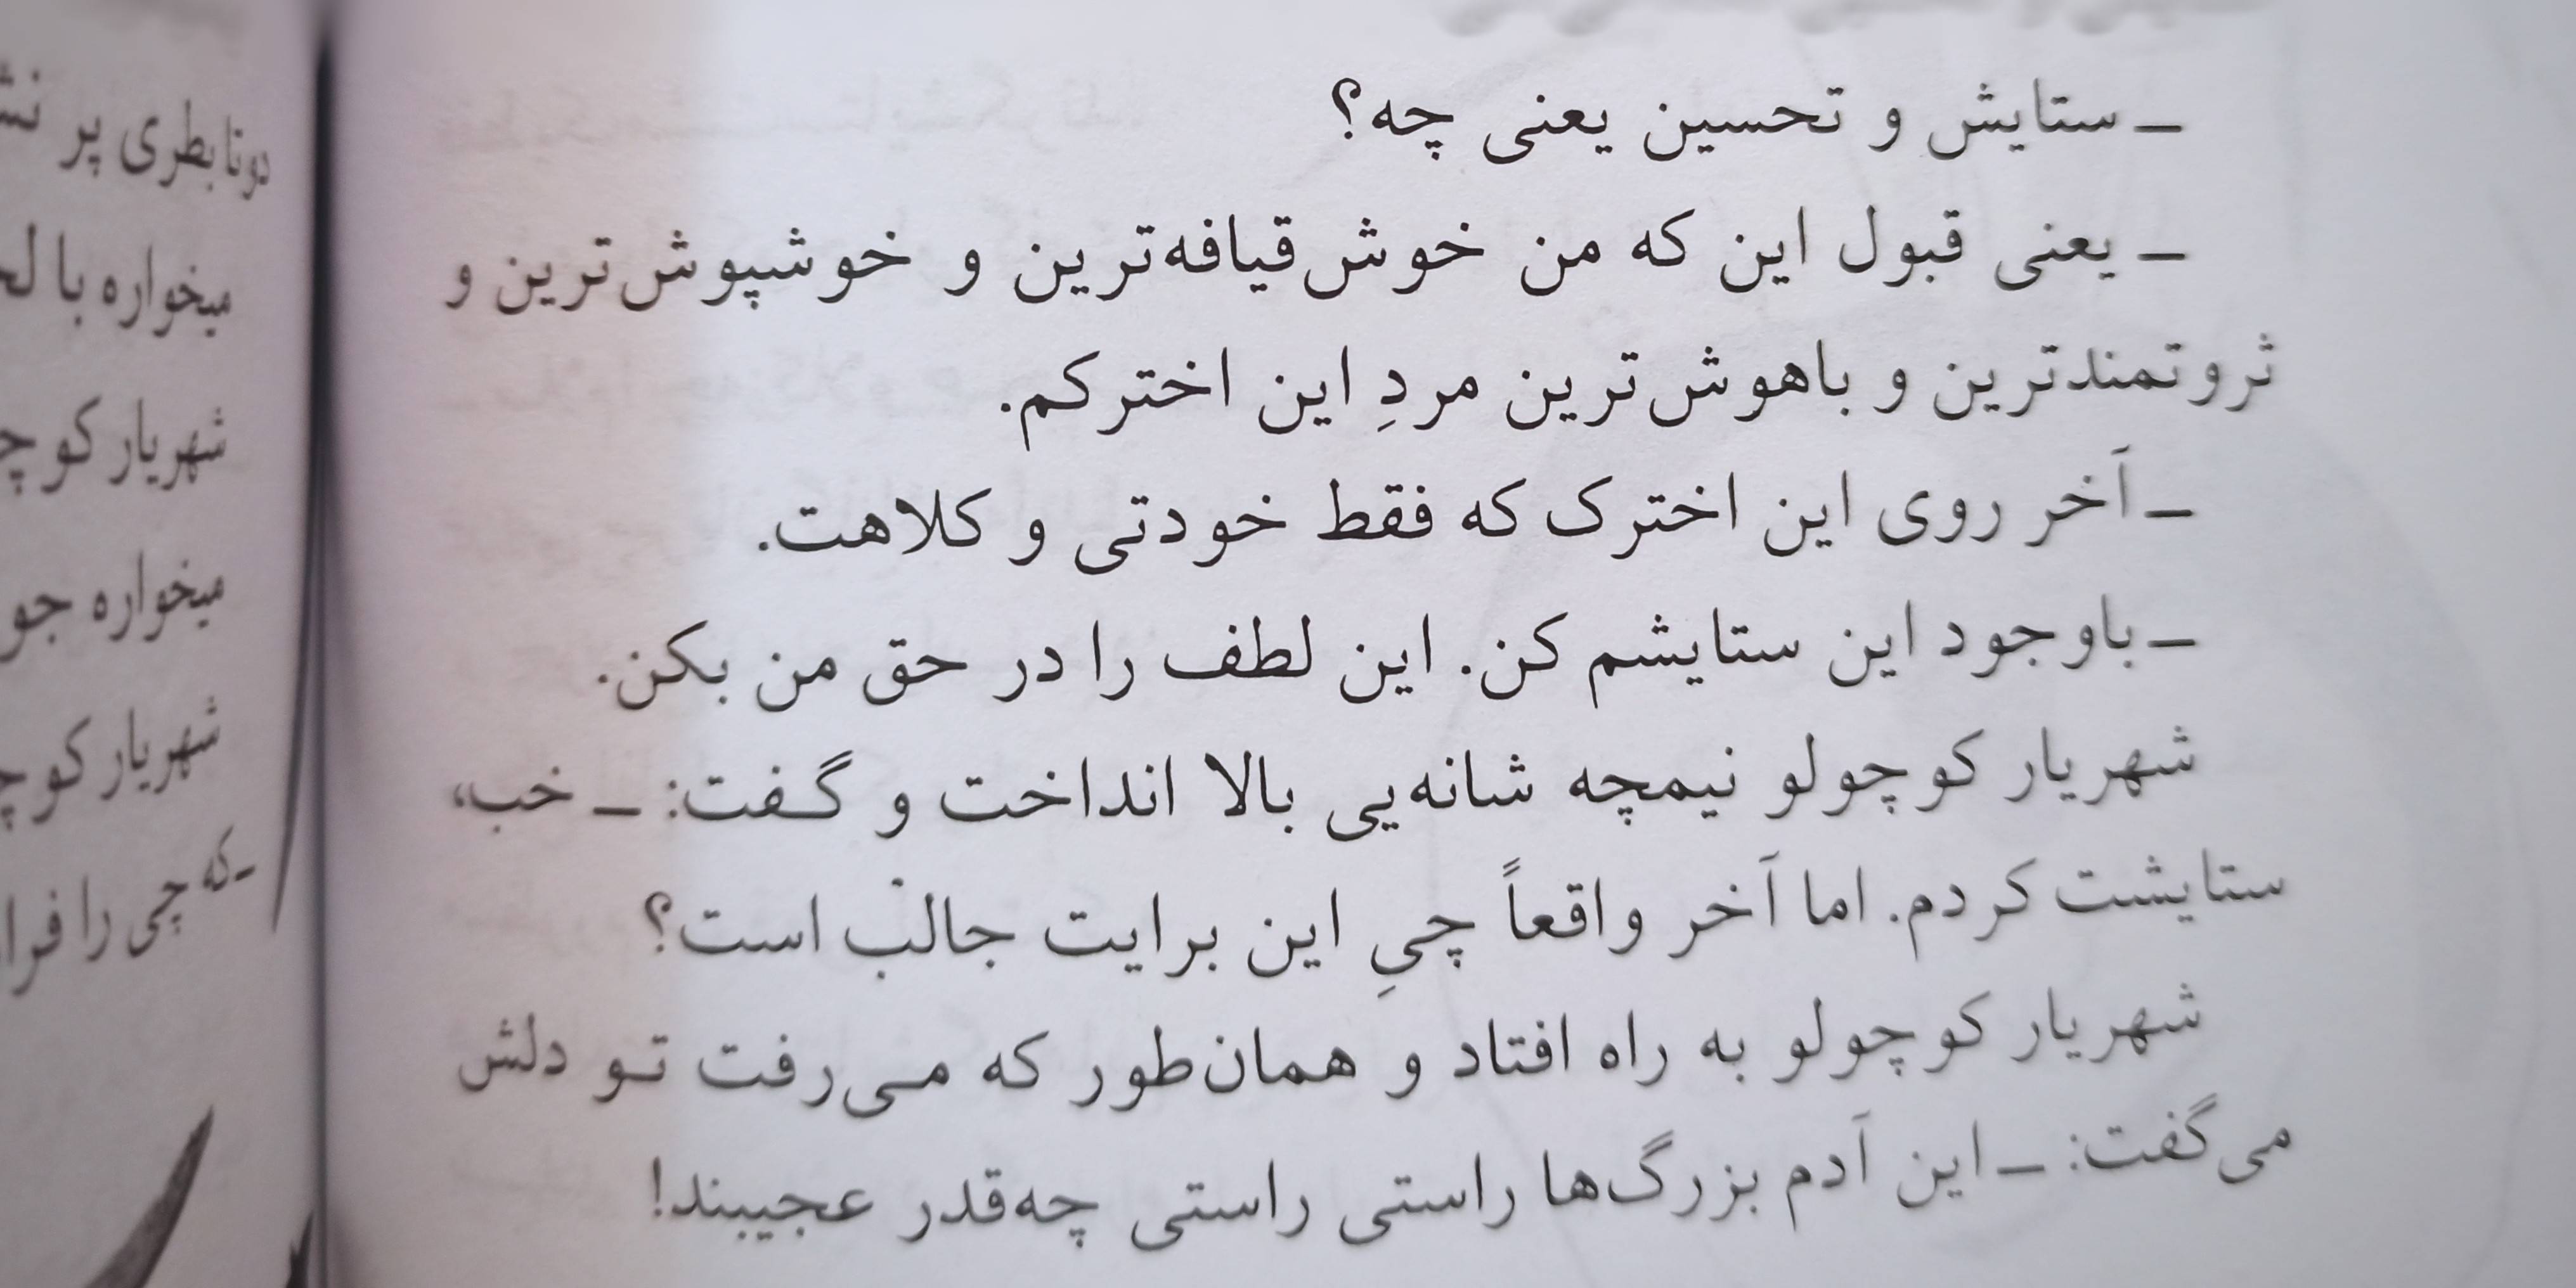 ـ ستایش و تحسین یعنی چه؟
ـ یعنی قبول این که من خوش‌قیافه‌ترین و خوشپوش‌ترین و
ثروتمندترین و باهوش‌ترین مردِ این اخترکم.
ـ آخر روی این اخترک که فقط خودتی و کلاهت.
ـ باوجود این ستایشم کن. این لطف را در حق من بکن.
شهریار کوچولو نیمچه شانه‌یی بالا انداخت و گفت: ـ خب،
ستایشت کردم. اما آخر واقعاً چیِ این برایت جالب است؟
شهریار کوچولو به راه افتاد و همان‌طور که می‌رفت تو دلش
می‌گفت: ـ این آدم بزرگ‌ها راستی راستی چه‌قدر عجیبند!
دوتا بطری پر
میخواره با
شهریار
میخواره
شهریار
ـ که چی را